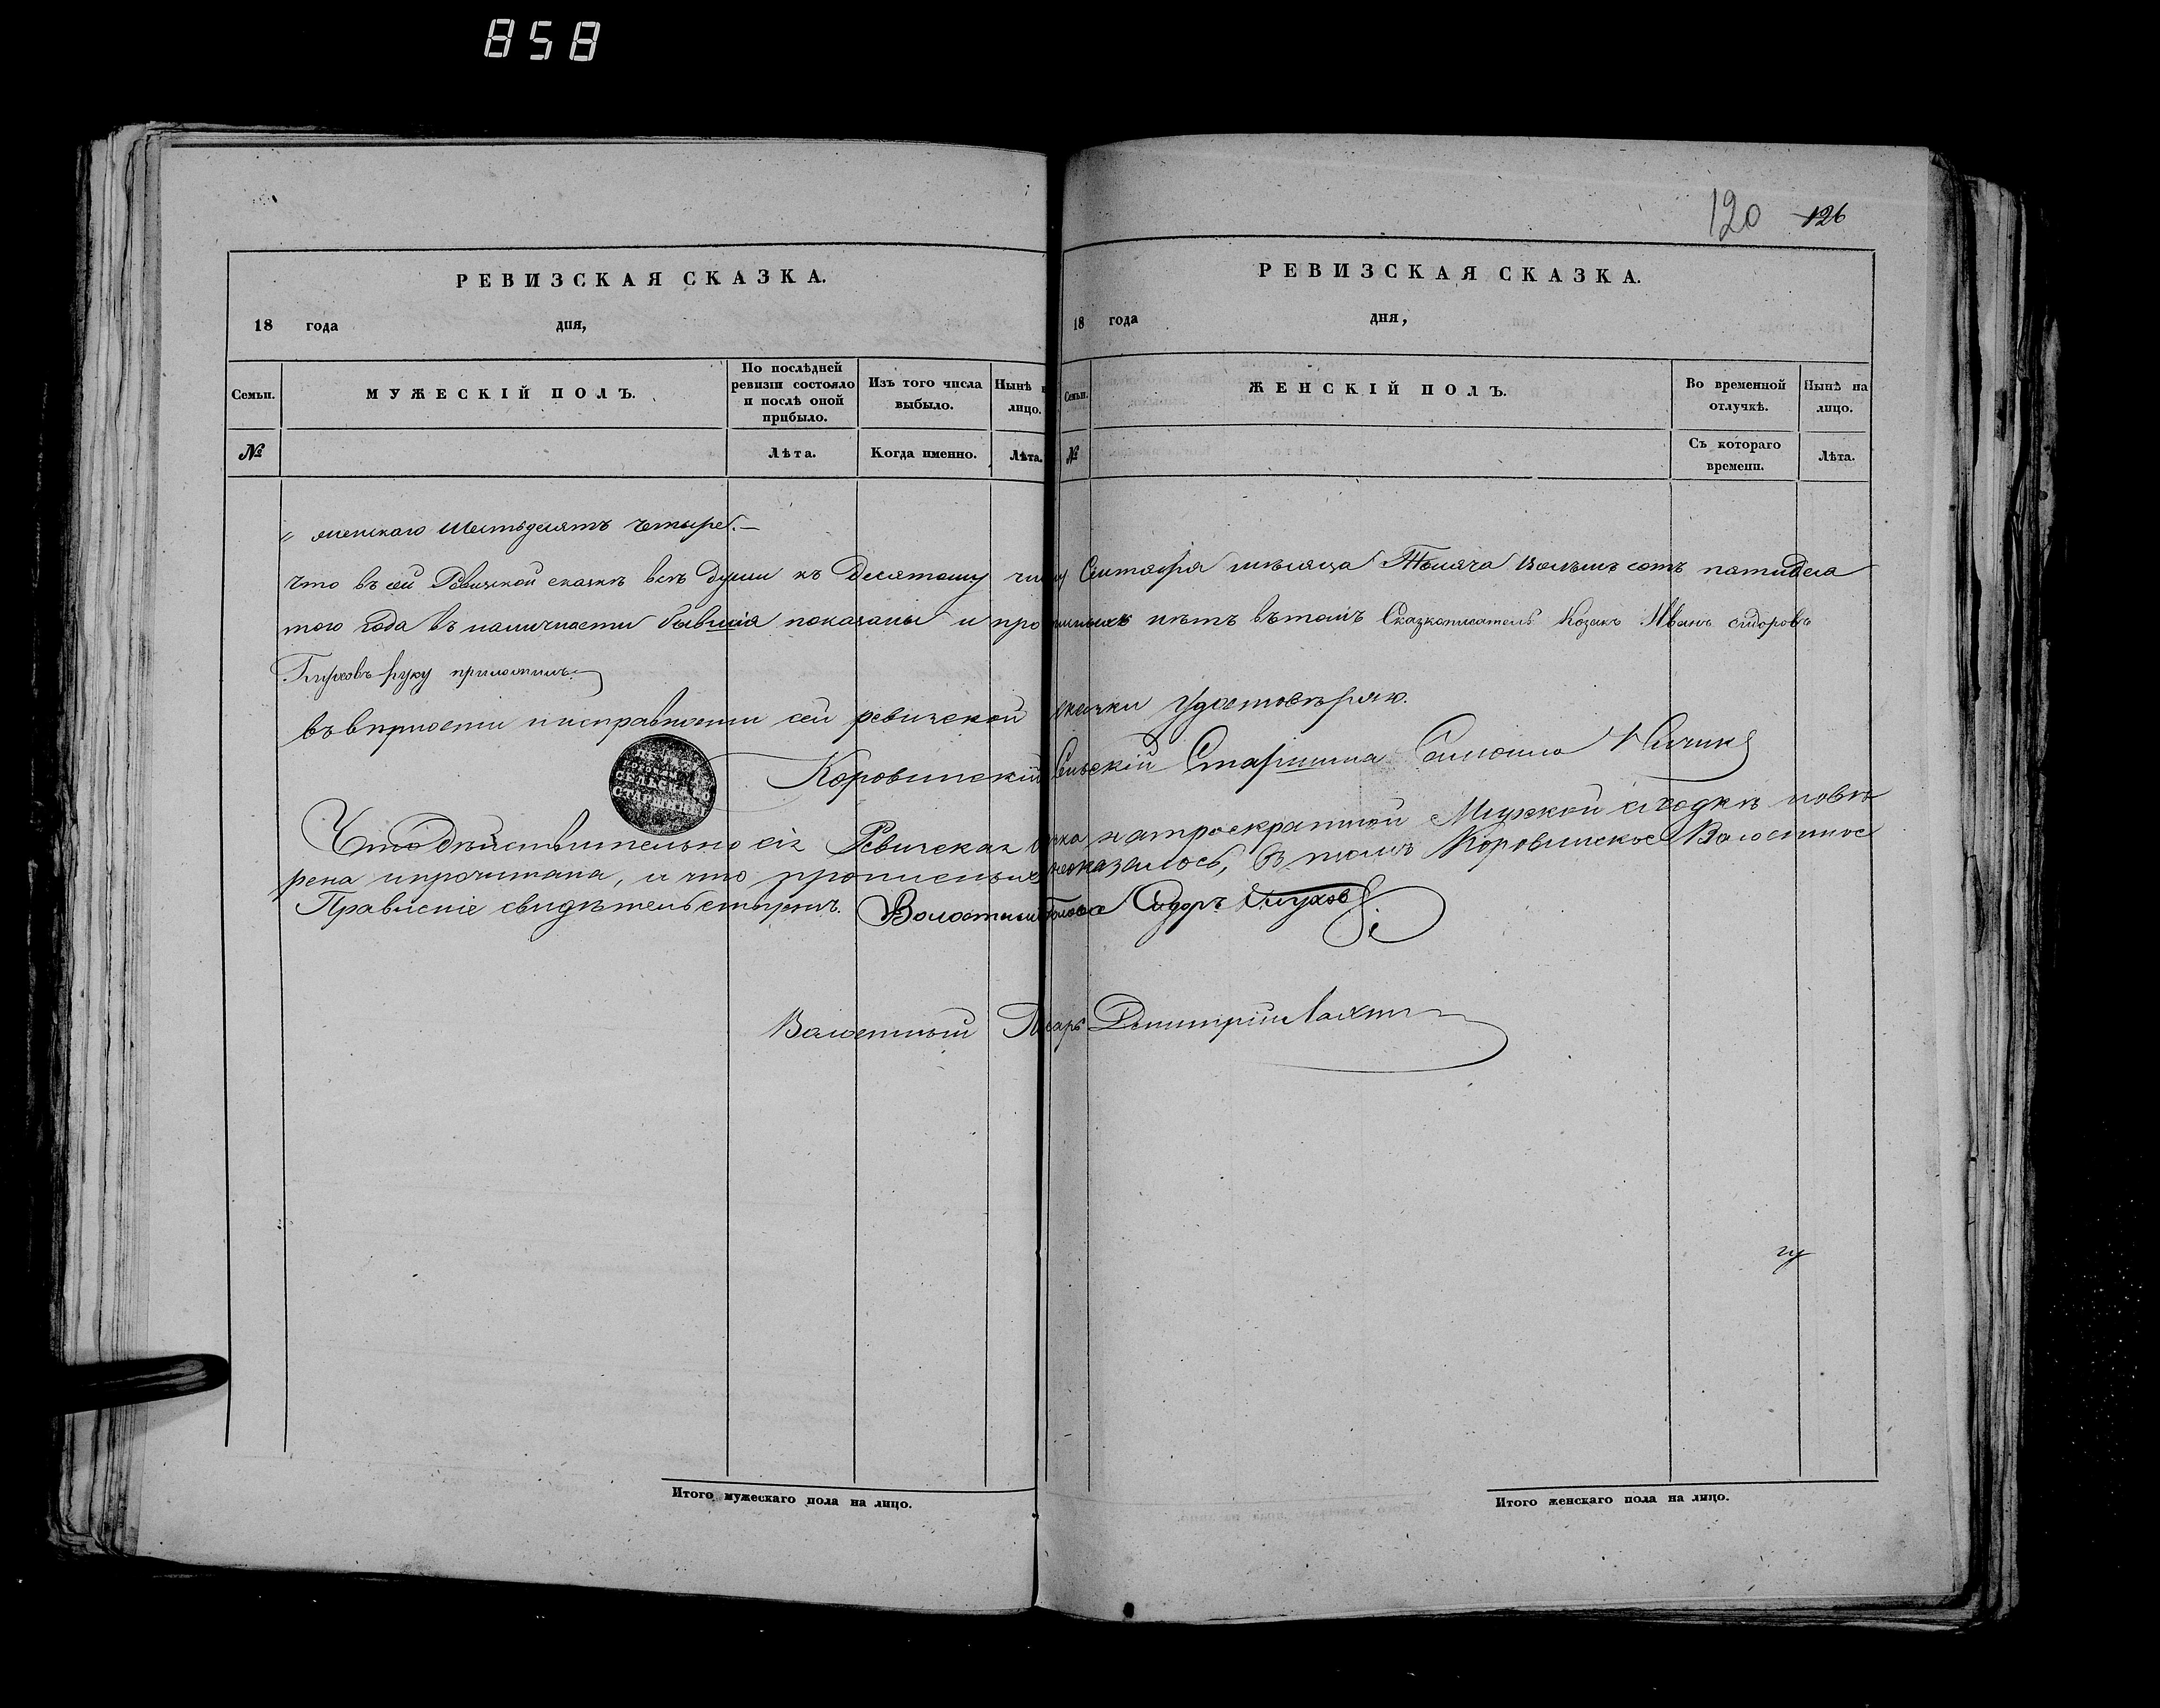 858
120 126
РЕВИЗСКАЯ СКАЗКА.
18 года дня,
Семьи. МУЖЕСКІЙ ПОЛЪ. По послѣдней ревизіи состояло и послѣ оной прибыло. Изъ того числа выбыло. Нынѣ н лицо.
№ Лѣта. Когда именно. Лѣта.
РЕВИЗСКАЯ СКАЗКА.
18 года дня,
Семьи. ЖЕНСКІЙ ПОЛЪ. Во временной отлучкѣ. Нынѣ на лицо.
№ Съ котораго времени. Лѣта.
„ женскаго Шестьдесятъ четыре.—
что въ сей Ревизской сказкѣ всѣ души къ Десятому числу Сентября мѣсяца
того года въ наличности бывшія показаны и прописныхъ нѣтъ вътомъ Сказкописатель Козакъ Иванъ сидоровъ
Глуховъ руку приложилъ.
въ вѣрности и исправности сей ревизской сказки Удостовѣряю.
Коровинскій Сельскій Старшина
СЕЛЬСКАГО
СТАРШИНЫ
Что Дѣйствительно сія Ревизская натроекратной Мирской сходкѣ повѣ
рена ипрочитана, и что прописныхъ неоказалось, в томъ Коровинское Волостное
Правленіе свидѣтельствуетъ. Волостный Голова Сидоръ Глухов
Волостный Писарь Димитрій
Итого мужескаго пола на лицо.
Итого женскаго пола на лицо.